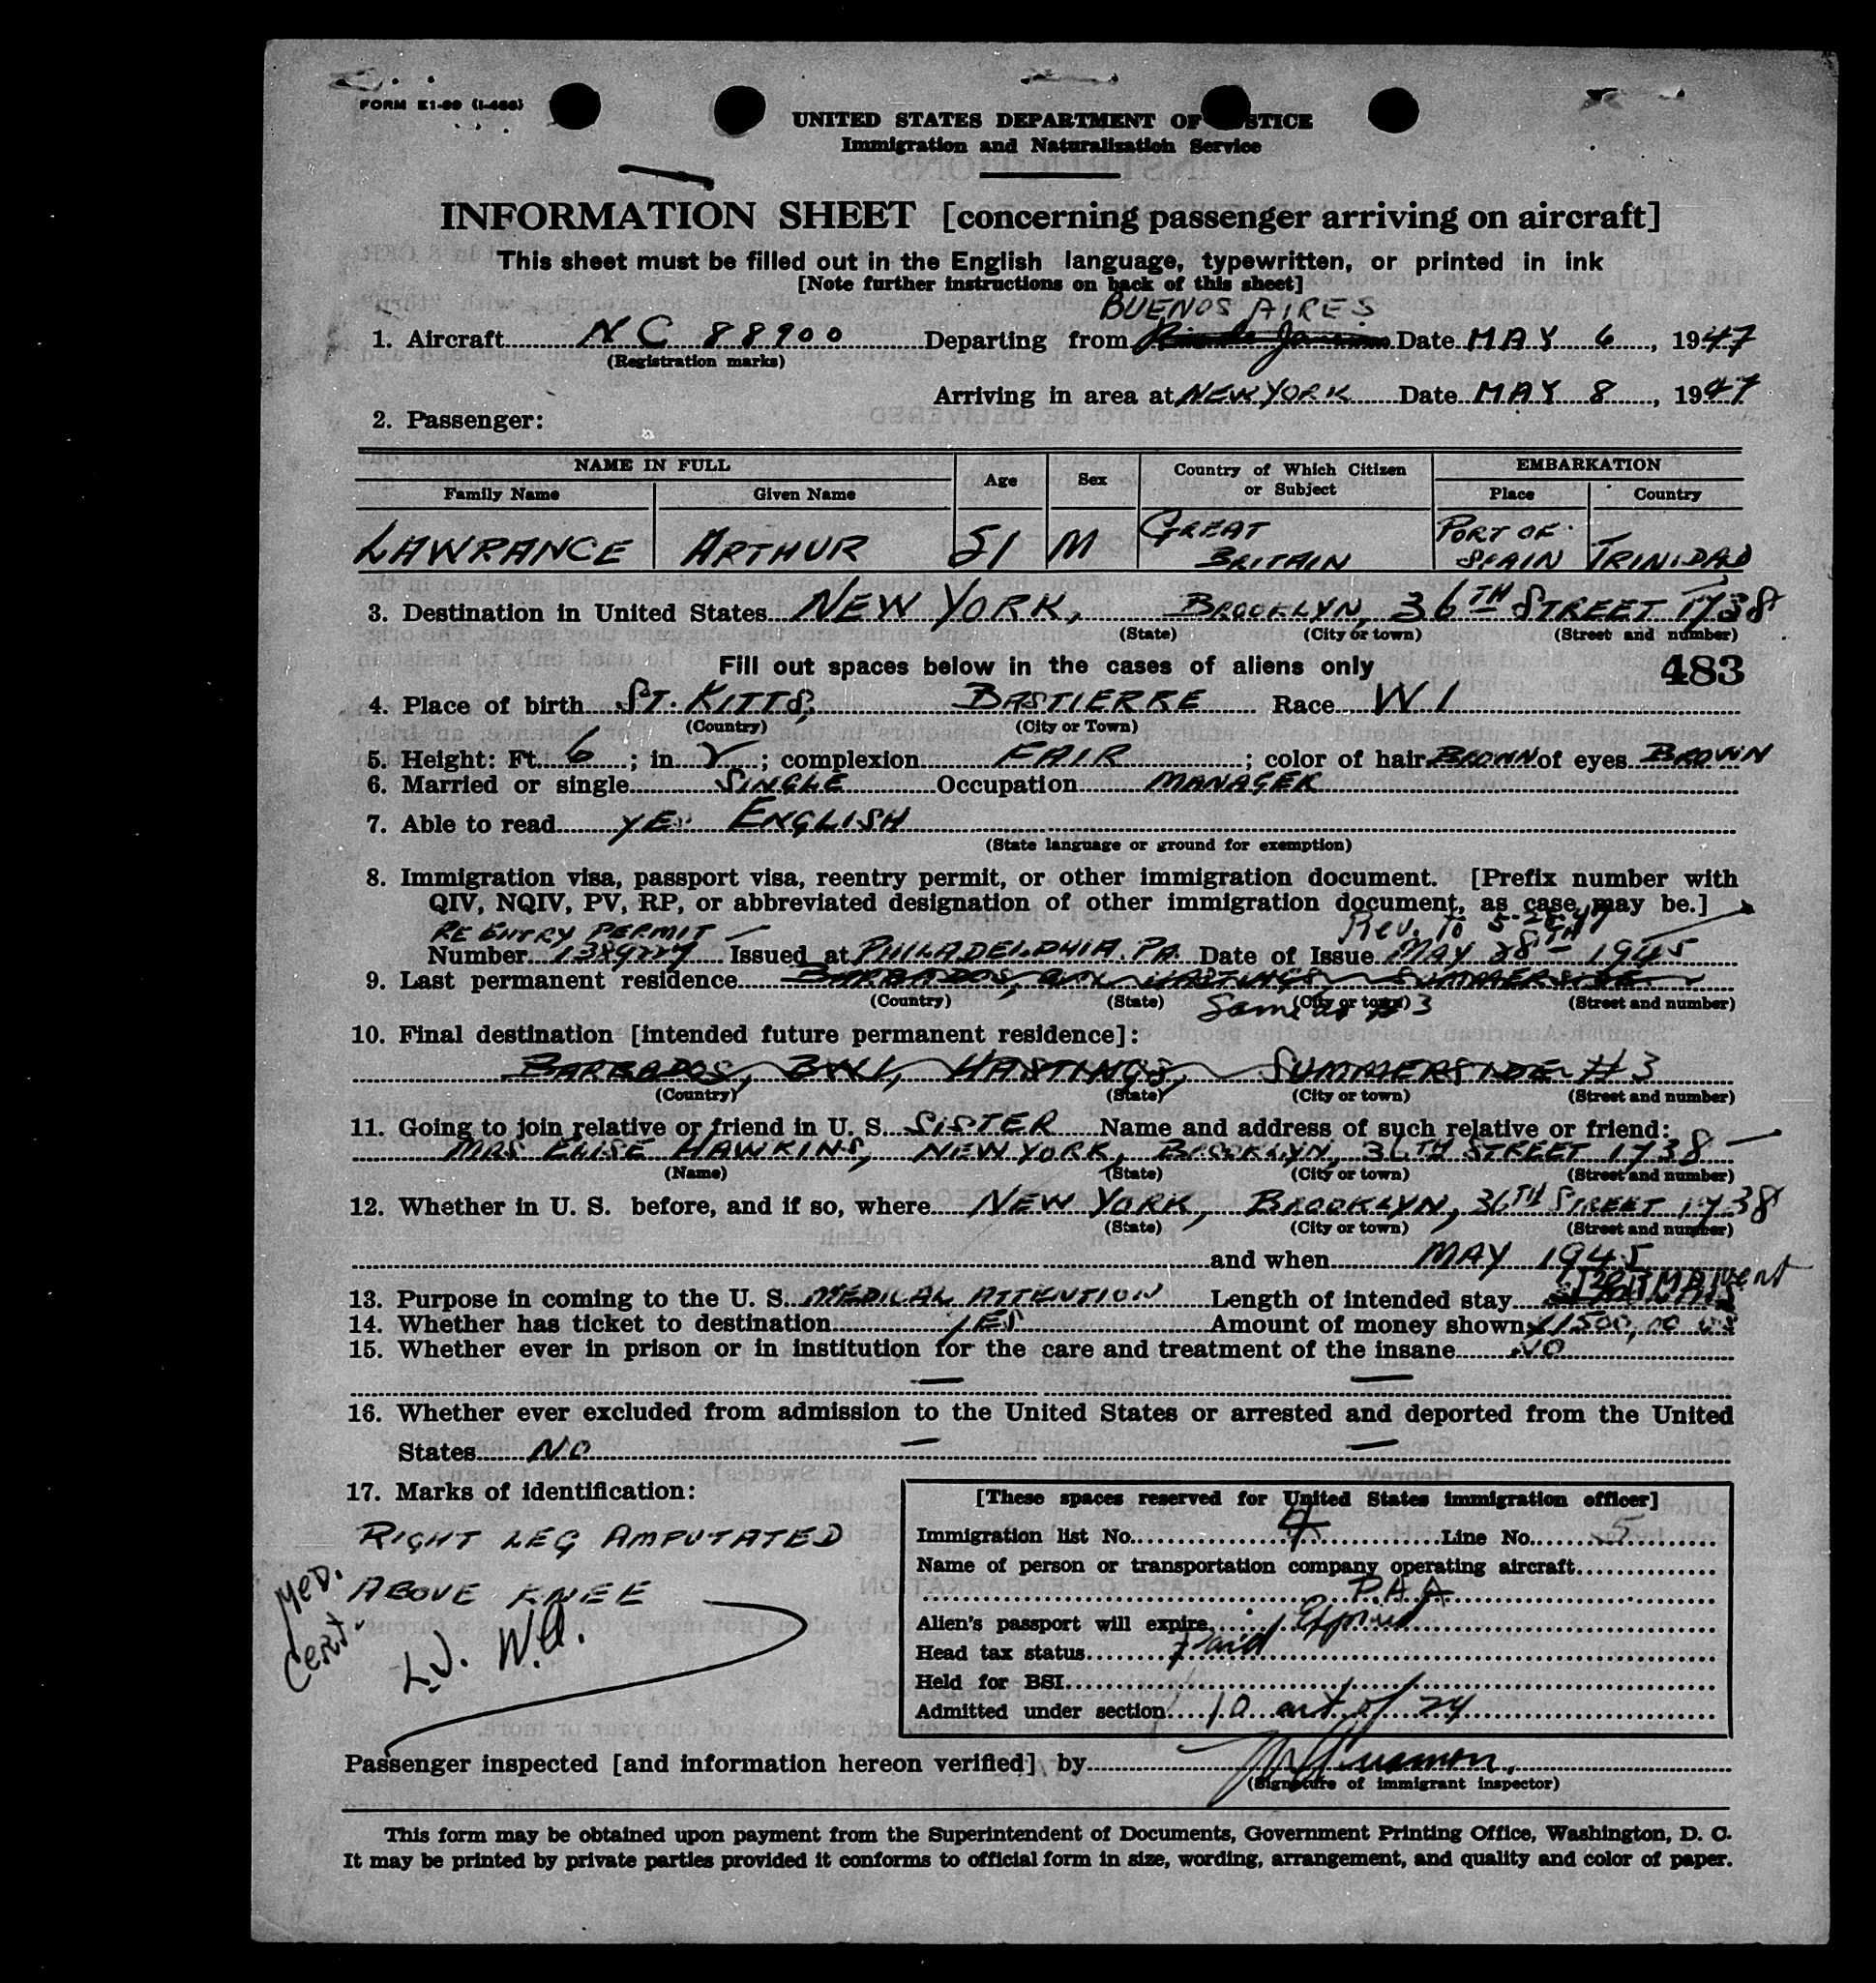 FORM I-466
UNITED STATES DEPARTMENT OF STICE
Immigration and Naturalization Service
INFORMATION SHEET [concerning passenger arriving on aircraft]
This sheet must be filled out in the English language, typewritten, or printed in ink
[Note further instructions on back of this sheet]
BUENOS AIRES
1. Aircraft NC 88900 Departing from Date MAY 6, 1947
(Registration marks)
Arriving in area at NEW YORK Date MAY 8, 1947
2. Passenger:
NAME IN FULL Age Sex Country of Which Citizen or Subject EMBARKATION
Family Name Given Name Place Country
LAWRANCE ARTHUR 51 M GREAT BRITAIN PORT OF SPAIN TRINIDAD
3. Destination in United States NEW YORK, BROOKLYN, 36TH STREET 1738
(State) (City or town) (Street and number)
Fill out spaces below in the cases of aliens only 483
4. Place of birth ST. KITTS, BASTIERRE Race W I
(Country) (City or Town)
5. Height: Ft. 6; in; complexion FAIR; color of hair BROWN of eyes BROWN
6. Married or single SINGLE Occupation MANAGER
7. Able to read YES ENGLISH
(State language or ground for exemption)
8. Immigration visa, passport visa, reentry permit, or other immigration document. [Prefix number with
QIV, NQIV, PV, RP, or abbreviated designation of other immigration document, as case may be.]
RE ENTRY PERMIT Rev. to 5-28-47
Number Issued at PHILADELPHIA. PA. Date of Issue MAY 28TH 1945
9. Last permanent residence BARBADOS, HASTINGS SUMMERSIDE
(Country) (State) (City or town) (Street and number)
Same as # 3
10. Final destination [intended future permanent residence]:
BARBADOS, BWI, HASTINGS, SUMMERSIDE # 3
(Country) (State) (City or town) (Street and number)
11. Going to join relative or friend in U. S. SISTER Name and address of such relative or friend:
MRS ELISE HAWKINS, NEW YORK, BROOKLYN, 36TH STREET 1738
(Name) (State) (City or town) (Street and number)
12. Whether in U. S. before, and if so, where NEW YORK, BROOKLYN, 36TH STREET 1738
(State) (City or town) (Street and number)
and when MAY 1945
13. Purpose in coming to the U. S. MEDICAL ATTENTION Length of intended stay PERMANent
14. Whether has ticket to destination YES Amount of money shown $1500,00 US
15. Whether ever in prison or in institution for the care and treatment of the insane NO
16. Whether ever excluded from admission to the United States or arrested and deported from the United
States NO
17. Marks of identification:
RIGHT LEG AMPUTATED
ABOVE KNEE
Med. Cert.
[These spaces reserved for United States immigration officer]
Immigration list No. 4 Line No. 5
Name of person or transportation company operating aircraft
P.A.A
Alien's passport will expire Expired
Head tax status paid
Held for BSI
Admitted under section 10 act of 24
Passenger inspected [and information hereon verified] by
(Signature of immigrant inspector)
This form may be obtained upon payment from the Superintendent of Documents, Government Printing Office, Washington, D. C.
It may be printed by private parties provided it conforms to official form in size, wording, arrangement, and quality and color of paper.